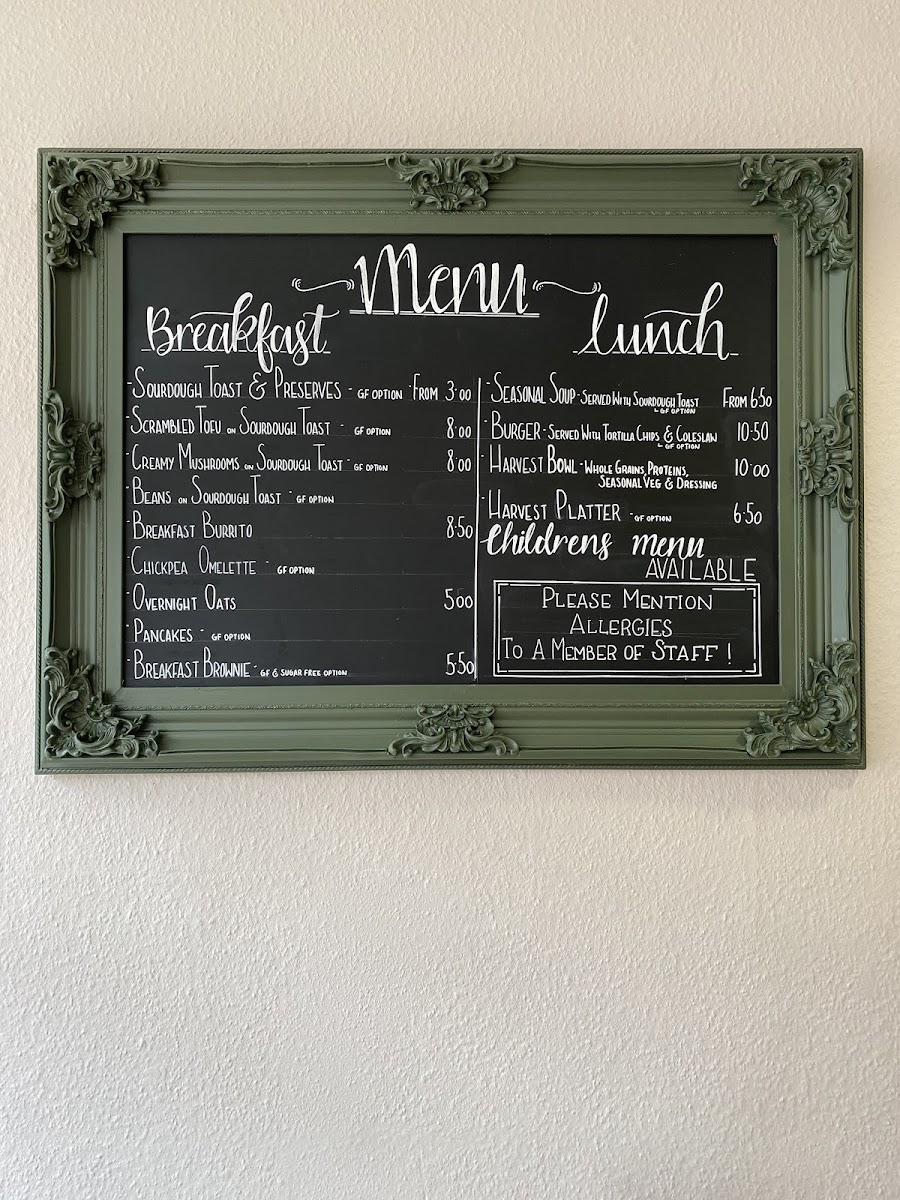 Menu
Breakfast
- Sourdough Toast & Preserves - GF OPTION From 3·00
- Scrambled Tofu on Sourdough Toast - GF OPTION 8·00
- Creamy Mushrooms on Sourdough Toast - GF OPTION 8·00
- Beans on Sourdough Toast - GF OPTION
- Breakfast Burrito 8·50
- Chickpea Omelette - GF OPTION
- Overnight Oats 5·00
- Pancakes - GF OPTION
- Breakfast Brownie - GF & SUGAR FREE OPTION 5·50
lunch
- Seasonal Soup - Served With Sourdough Toast From 6·50
GF OPTION
- Burger - Served With Tortilla Chips & Coleslaw 10·50
GF OPTION
- Harvest Bowl - Whole Grains, Proteins, 10·00
Seasonal Veg & Dressing
- Harvest Platter - GF OPTION 6·50
Childrens menu
AVAILABLE
Please Mention
Allergies
To A Member of Staff !